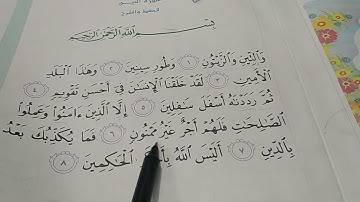 بِسْمِ اللَّهِ الرَّحْمَٰنِ الرَّحِيمِ
وَالتِّينِ وَالزَّيْتُونِ ١ وَطُورِ سِينِينَ ٢ وَهَٰذَا الْبَلَدِ
الْأَمِينِ ٣ لَقَدْ خَلَقْنَا الْإِنسَانَ فِي أَحْسَنِ تَقْوِيمٍ ٤
ثُمَّ رَدَدْنَاهُ أَسْفَلَ سَافِلِينَ ٥ إِلَّا الَّذِينَ ءَامَنُوا وَعَمِلُوا
الصَّالِحَاتِ فَلَهُمْ أَجْرٌ غَيْرُ مَمْنُونٍ ٦ فَمَا يُكَذِّبُكَ بَعْدُ
بِالدِّينِ ٧ أَلَيْسَ اللَّهُ بِأَحْكَمِ الْحَاكِمِينَ ٨